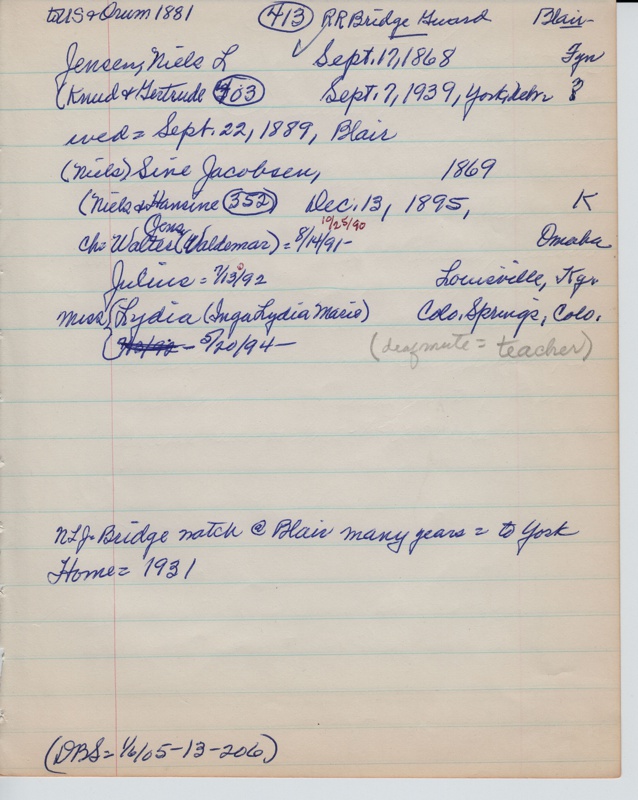 to US & Orum 1881 (413) RR Bridge Guard Blair
Jensen, Niels L ✓ Sept. 17, 1868 Fyn
(Knud & Gertrude 403) Sept. 7, 1939, York, Nebr ?
wed = Sept. 22, 1889, Blair
(Niels) Sine Jacobsen, 1869
(Niels & Hansine (352) Dec. 13, 1895, K
Jens 10/25/90
ch = Walter (Waldemar) = 8/14/91- Omaha
Julius = 7/13/92 Louisville, Ky.
Miss Lydia (Inga Lydia Marie) Colo. Springs, Colo.
5/20/94- (deafmute = teacher)
NLJ = Bridge watch @ Blair many years = to York
Home = 1931
(DBS = 1/6/05-13-206)